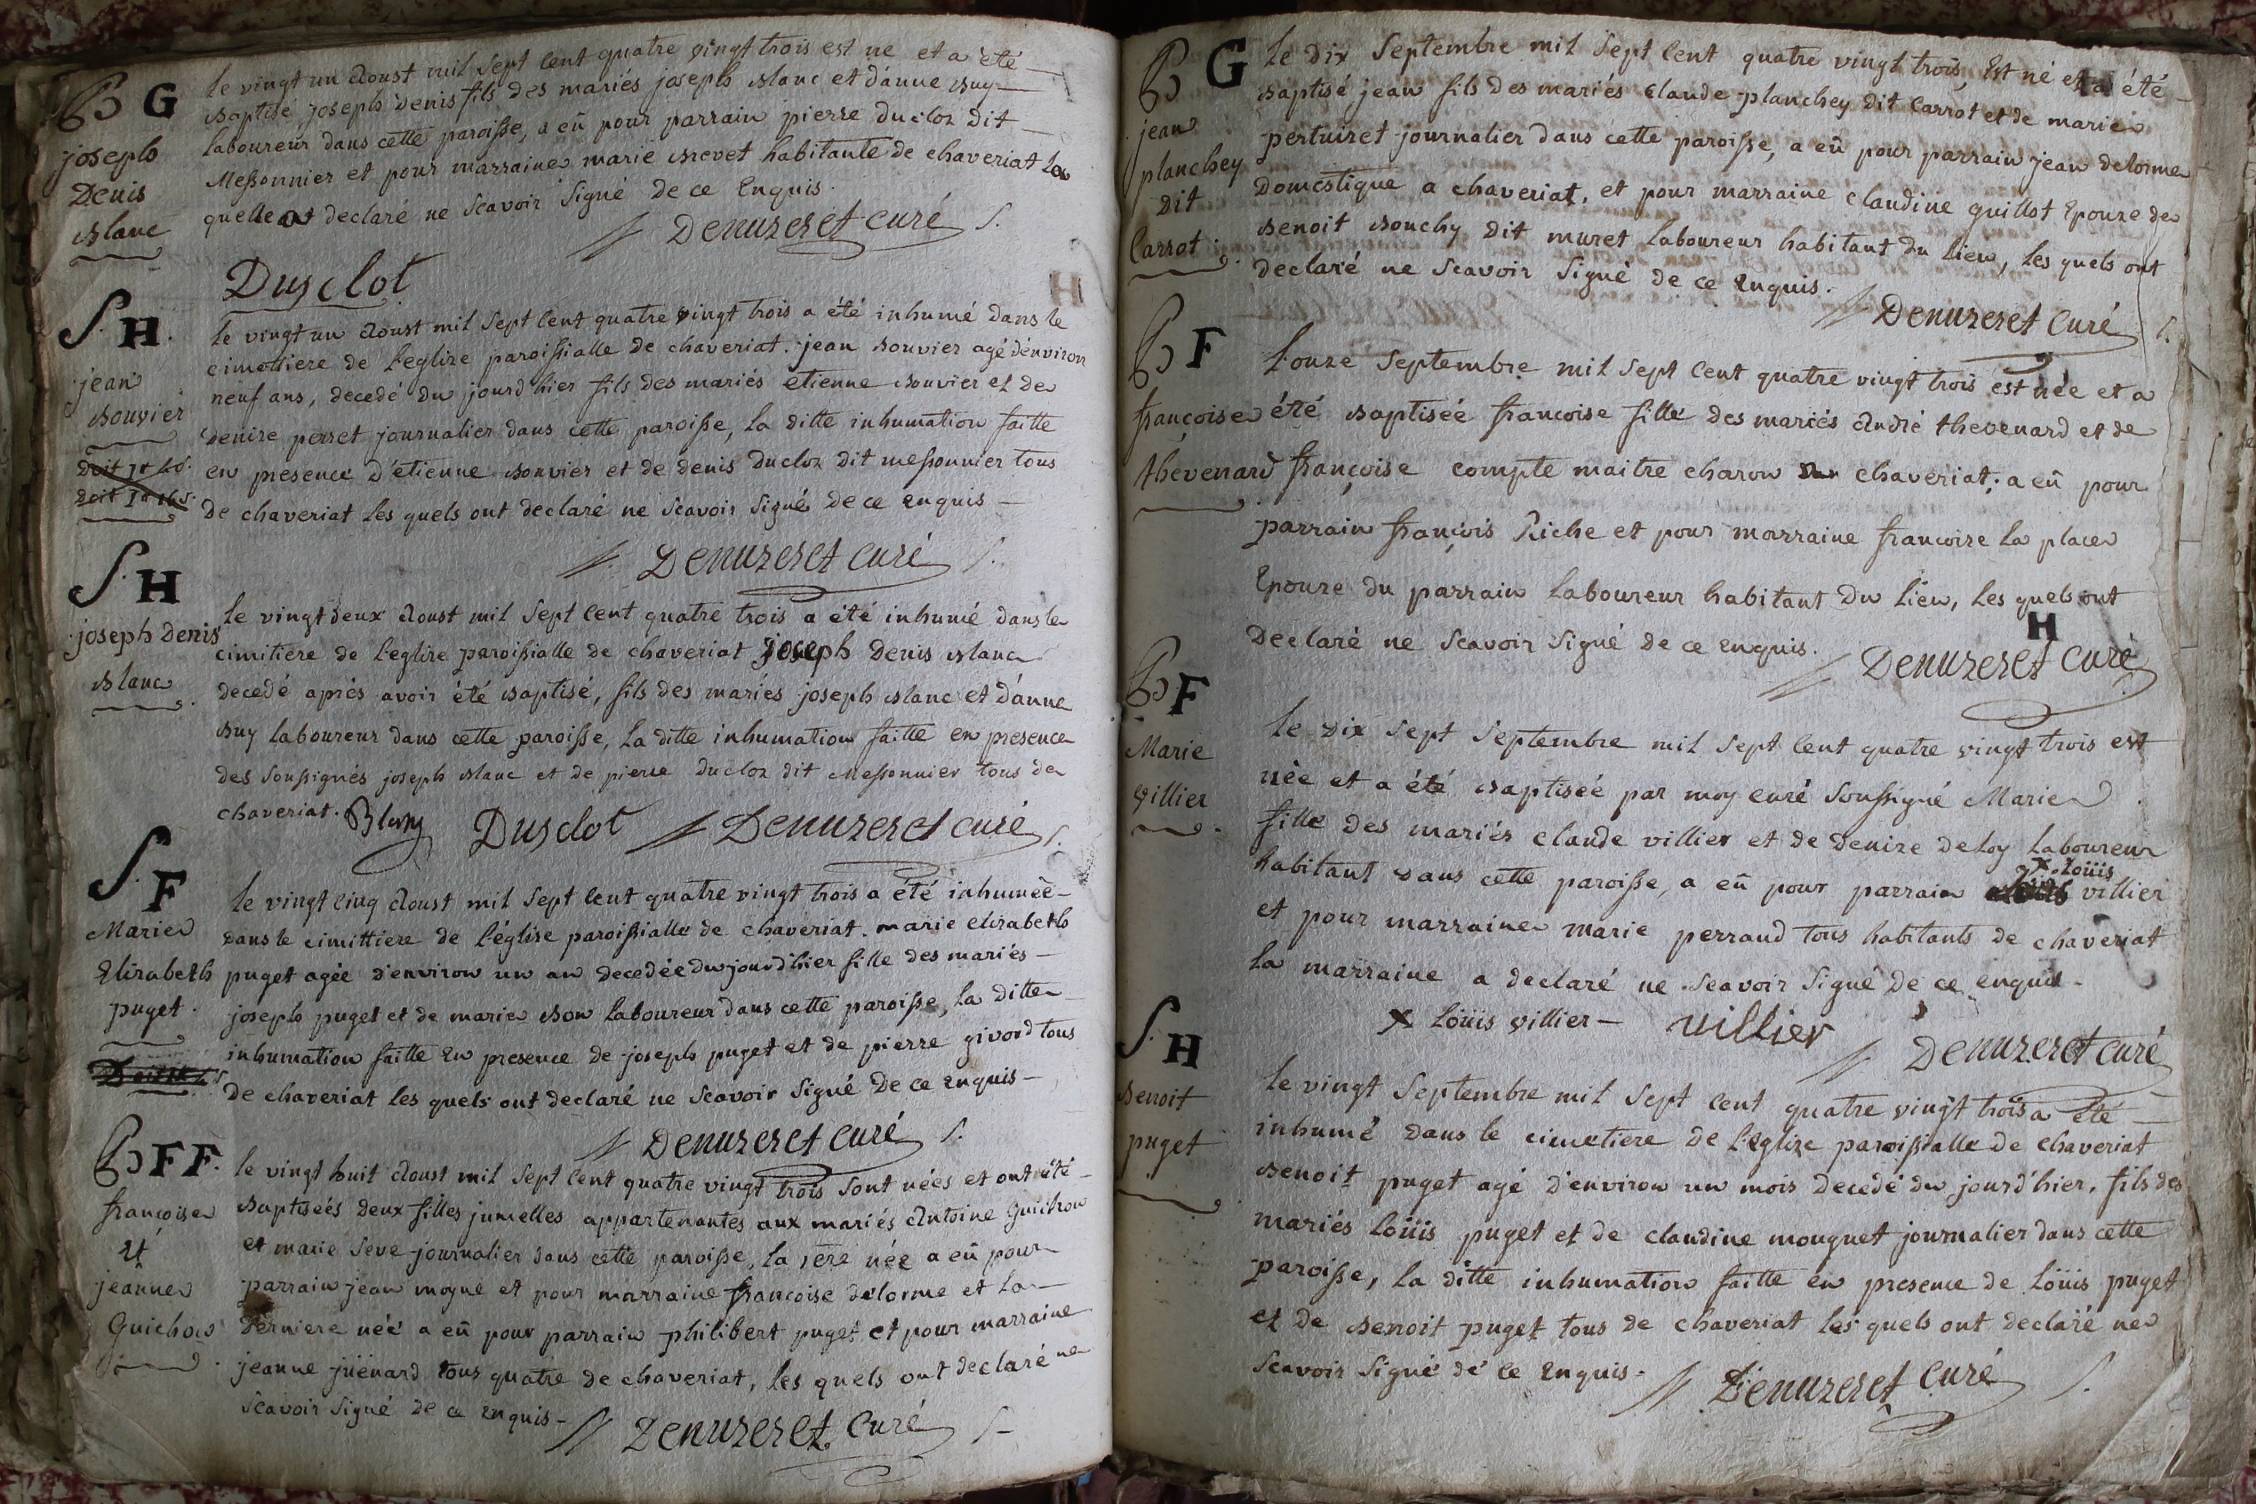 B G
joseph
Denis
Blanc
le vingt un Aoust mil Sept Cent quatre vingt trois est né et a été
Baptisé joseph Denis fils des mariés joseph Blanc et d'anne Buy
laboureur dans cette paroisse, a eû pour parrain pierre duclos dit
Messonnier et pour marraine marie Brevet habitante de chaveriat la
quelle a declaré ne Scavoir Signé de ce Enquis.
Denuzeret curé
Dusclot
S. H.
jean
Bouvier
Doit 1# 4 s.
Doit 1# 16 s.
le vingt un Aoust mil Sept Cent quatre vingt trois a été inhumé dans le
cimettiere de l'eglize paroissialle de chaveriat. jean Bouvier agé d'environ
neuf ans, decedé du jourd'hier fils des mariés etienne Bouvier et de
Denize perret journalier dans cette paroisse, la ditte inhumation faitte
en presence d'etienne Bouvier et de denis Duclos dit messonnier tous
de chaveriat les quels ont declaré ne Scavoir Signé de ce enquis —
Denuzeret curé
S. H
joseph Denis
Blanc
le vingt deux Aoust mil Sept Cent quatre trois a été inhumé dans le
cimitiere de l'eglize paroissialle de chaveriat joseph Denis Blanc
decedé aprés avoir été Baptisé, fils des mariés joseph Blanc et d'anne
Buy laboureur dans cette paroisse, la ditte inhumation faitte en presence
des Soussignés joseph Blanc et de pierre duclos dit Messonnier tous de
chaveriat.
Dusclot Denuzeret curé
S. F
Marie
Elizabeth
puget.
le vingt Cinq Aoust mil Sept Cent quatre vingt trois a été inhumée
dans le cimittiere de l'église paroissialle de chaveriat. marie elizabeth
puget agée d'environ un an decedée du jourd'hier fille des mariés —
joseph puget et de marie Bon laboureur dans cette paroisse, la ditte
inhumation faitte En presence de joseph puget et de pierre givord tous
de chaveriat les quels ont declaré ne Scavoir Signé de ce Enquis —
Denuzeret curé
B FF.
francoise
Et
jeanne
Guichon
le vingt huit Aoust mil Sept Cent quatre vingt trois Sont nées et ont été
Baptiseés deux filles jumelles appartenantes aux mariés Antoine Guichon
et marie Seve journalier dans cette paroisse, la 1ere née a eû pour
parrain jean moyne et pour marraine francoise delorme et la
derniere née a eû pour parrain philibert puget et pour marraine
jeanne juënard tous quatre de chaveriat, les quels ont declaré ne
Scavoir Signé de ce enquis —
Denuzeret Curé
B G
jean
planchey
dit
Carrot.
Le dix Septembre mil Sept Cent quatre vingt trois Est né et a été
Baptisé jean fils des mariés Claude planchey dit Carrot et de marie
pertuizet journalier dans cette paroisse, a eû pour parrain jean delorme
Domestique a chaveriat, et pour marraine claudine guillot Epouze de
Benoit Bouchy dit muret laboureur habitant du lieu, les quels ont
declaré ne Scavoir Signé de ce Enquis.
Denuzeret curé
B F
françoise
thevenard
L'onze Septembre mil Sept Cent quatre vingt trois est née et a
été Baptisée francoise fille des mariés André thevenard et de
françoise compte maitre charon chaveriat; a eû pour
parrain françois Riche et pour marraine francoize la place
Epouze du parrain Laboureur habitant du lieu, les quels ont
Declaré ne Scavoir Signé de ce enquis.
H
Denuzeret curé
B F
Marie
villier
le dix Sept Septembre mil Sept Cent quatre vingt trois est
née et a été Baptiseé par moy curé Soussigné Marie
fille des mariés claude villier et de denize deloy laboureur
habitant dans cette paroisse, a eû pour parrain x. Loüis villier
et pour marraine marie perraud tous habitants de chaveriat
la marraine a declaré ne Scavoir Signé de ce enquis.
x Loüis villier — villier
Denuzeret curé
S. H
Benoit
puget
le vingt Septembre mil Sept Cent quatre vingt trois a été
inhumé dans le cimetiere de l'eglize paroissialle de chaveriat
Benoit puget agé d'environ un mois decedé du jourd'hier, fils des
mariés Loüis puget et de claudine mouguet journalier dans cette
paroisse, la ditte inhumation faitte en presence de Loüis puget
et de Benoit puget tous de chaveriat les quels ont declaré ne
Scavoir Signé de ce Enquis.
Denuzeret curé